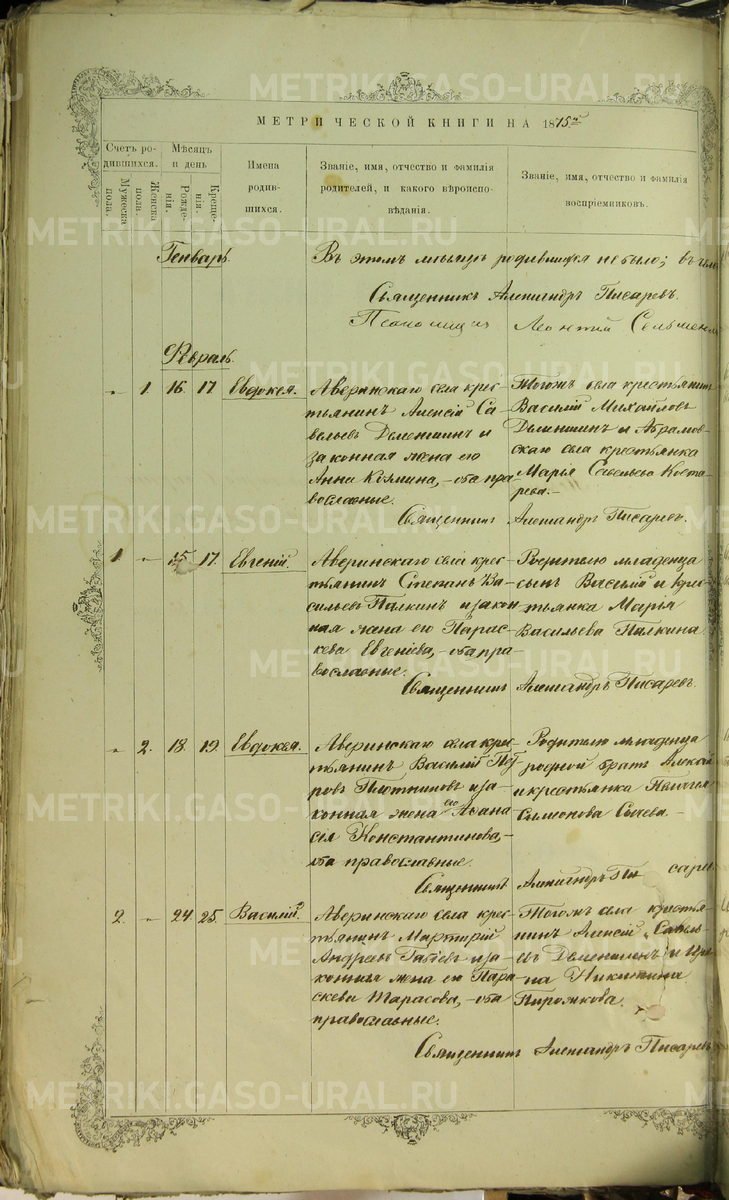 МЕТРИЧЕСКОЙ КНИГИ НА 1875й
Счетъ родившихся.
Мужеска пола.
Женска пола.
Мѣсяцъ и день
Рожденія.
Крещенія.
Имена родившихся.
Званіе, имя, отчество и фамилія
родителей, и какого вѣроиспо-
вѣданія.
Званіе, имя, отчество и фамилія
воспріемниковъ.
Генварь.
Въ этомъ мѣсяцѣ родившихся не было; въ чемъ
Священникъ Александръ Писаревъ.
Псаломщикъ Леонтій
Февраль.
" 1. 16. 17. Евдокея.
Аверинскаго села крес-
тьянинъ Алексій Са-
вельевъ Деменшинъ и
законная жена его
Анна Козмина, – оба пра-
вославные.
Тогожъ села крестьянинъ
Василій Михайловъ
Деменшинъ и Абрамов-
скаго села крестьянка
Марія Савельева Коста-
рева. –
Священникъ Александръ Писаревъ.
1 " 15 17. Евгеній.
Аверинскаго села крес-
тьянинъ Степанъ Ва-
сильевъ Палкинъ и закон
ная жена его Парас-
кева Евгеніева, – оба пра-
вославные.
Родителю младенца
сынъ Василій и крес-
тьянка Марія
Васильева Палкина
Священникъ Александръ Писаревъ.
" 2. 18. 19. Евдокея.
Аверинскаго села крес-
тьянинъ Василій
ровъ Плотниковъ и за-
конная жена его Афана-
сія Константинова, –
оба православные.
Родителю младенца
родной братъ Алексій
и крестьянка Пелагея
Симонова Сычева. –
Священникъ Александръ Писаревъ
2. " 24. 25. Василій.
Аверинскаго села крес-
тьянинъ Мартирій
Андреевъ и за-
конная жена его Пара-
скева Тарасова, – оба
православные.
Тогожъ села крестья-
нинъ Алексій Савель-
евъ Деменшинъ и Ири-
на Никитина
Пирожкова.
Священникъ Александръ Писаревъ
METRIKI.GASO-URAL.RU